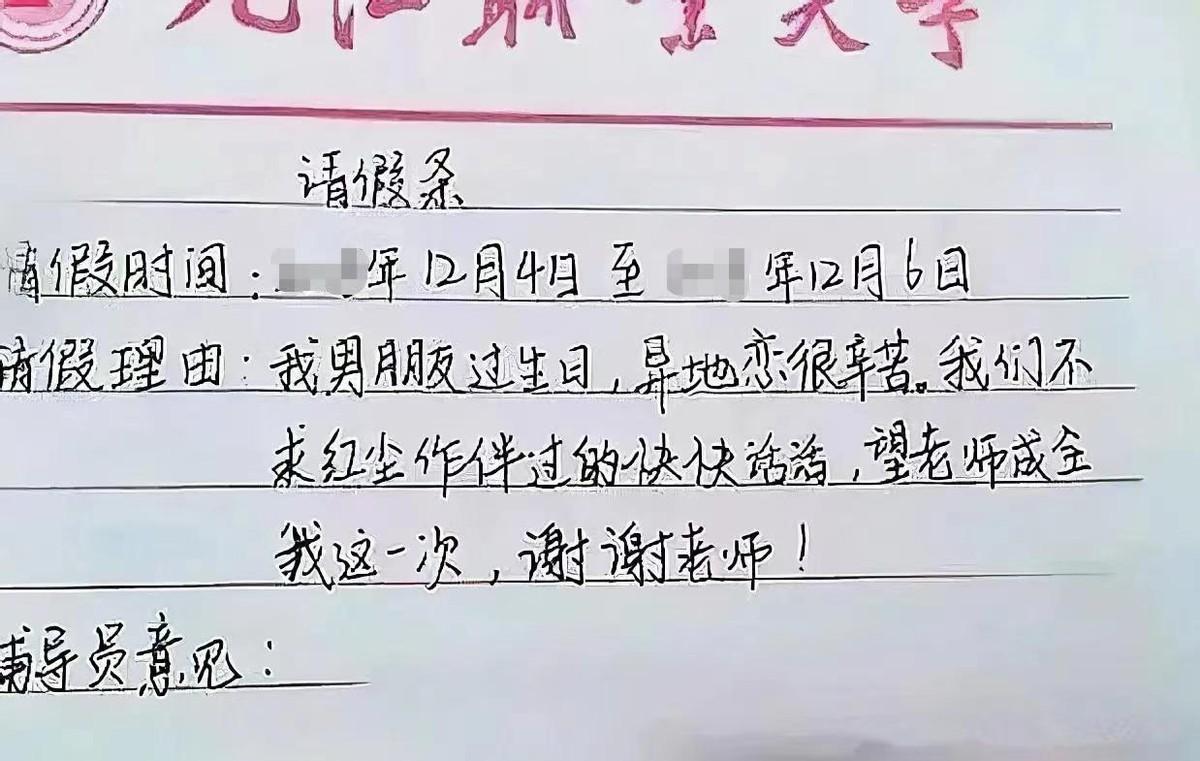 九江职业大学
请假条
请假时间：年12月4日至年12月6日
请假理由：我男朋友过生日，异地恋很辛苦。我们不
求红尘作伴过的快快活活，望老师成全
我这一次，谢谢老师！
辅导员意见：